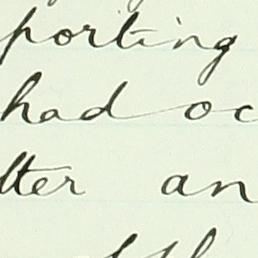 porting
had oc
tter an